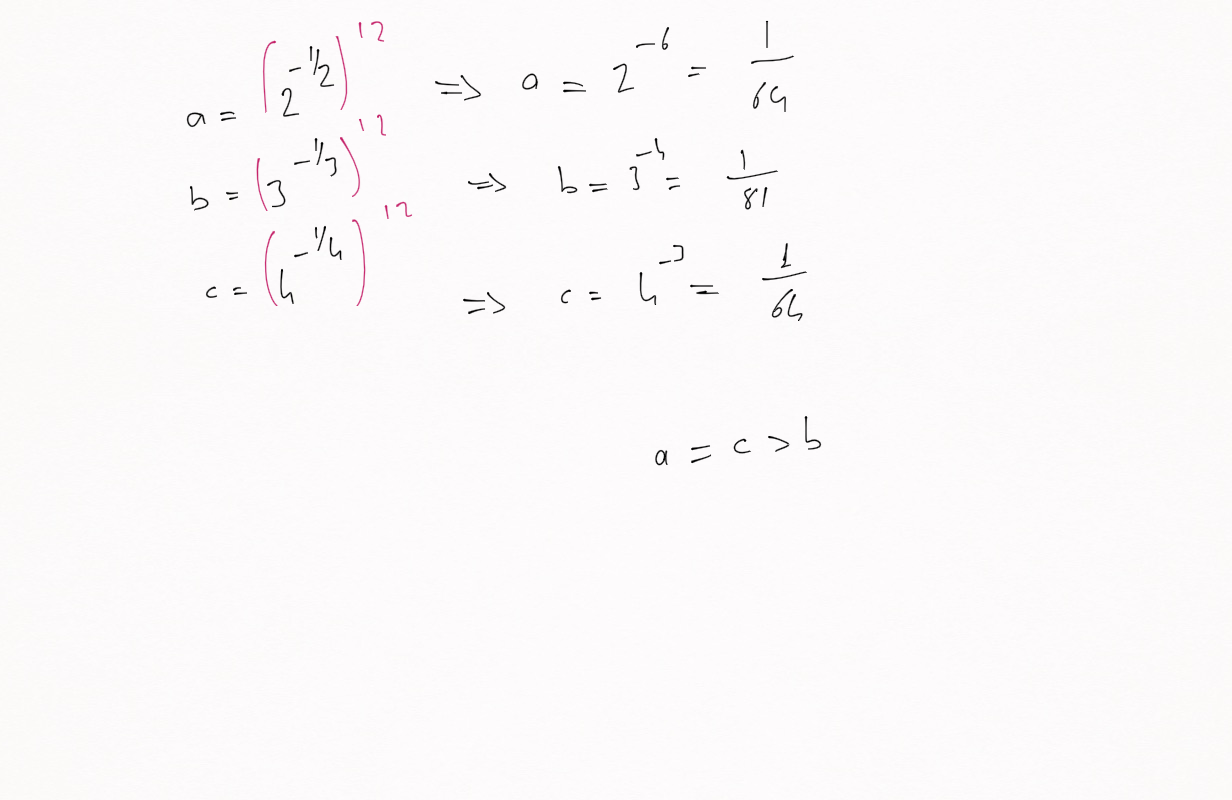 a = (2^{-1/2})^{12} => a = 2^{-6} = 1/64
b = (3^{-1/3})^{12} => b = 3^{-4} = 1/81
c = (4^{-1/4})^{12} => c = 4^{-3} = 1/64
a = c > b